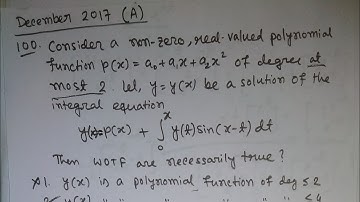 December 2017 (A)
100. Consider a non-zero, real-valued polynomial
function p(x) = a₀ + a₁x + a₂x² of degree at
most 2. Let, y = y(x) be a solution of the
integral equation
y(x) = p(x) + ∫₀ˣ y(t) sin(x-t) dt
Then WOTF are necessarily true?
1. y(x) is a polynomial function of deg ≤ 2